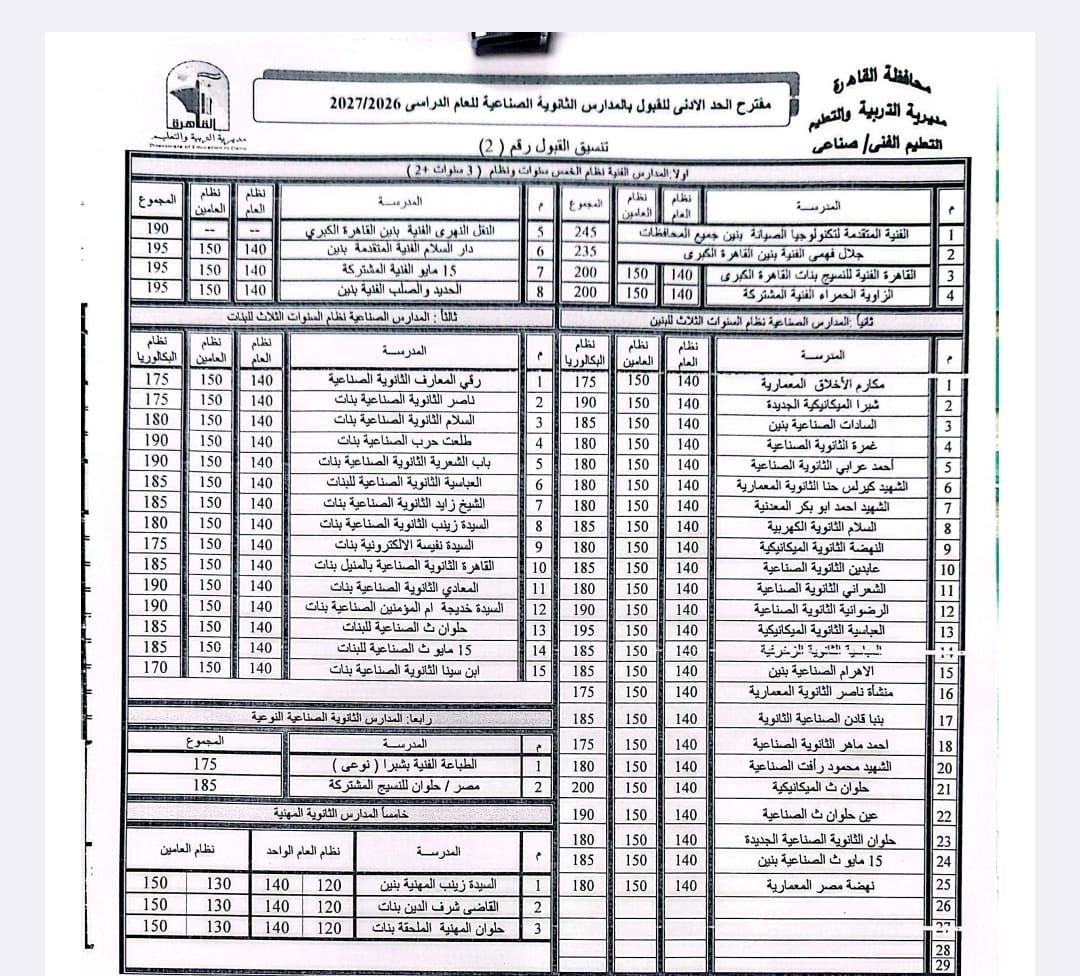 محافظة القاهرة
مديرية التربية والتعليم
التعليم الفنى/ صناعى
القاهرة
مديرية التربية والتعليم
Directorate of Education in Cairo
مقترح الحد الادنى للقبول بالمدارس الثانوية الصناعية للعام الدراسى 2027/2026
تنسيق القبول رقم ( 2)
اولا:المدارس الفنية نظام الخمس سنوات ونظام ( 3 سنوات +2 )
م المدرسة نظام العام نظام العامين المجموع
1 الفنية المتقدمة لتكنولوجيا الصيانة بنين جميع المحافظات 245
2 جلال فهمى الفنية بنين القاهرة الكبرى 235
3 القاهرة الفنية للنسيج بنات القاهرة الكبرى 140 150 200
4 الزاوية الحمراء الفنية المشتركة 140 150 200
م المدرسة نظام العام نظام العامين المجموع
5 النقل النهرى الفنية بنين القاهرة الكبري -- -- 190
6 دار السلام الفنية المتقدمة بنين 140 150 195
7 15 مايو الفنية المشتركة 140 150 195
8 الحديد والصلب الفنية بنين 140 150 195
ثانياً :المدارس الصناعية نظام السنوات الثلاث للبنين
م المدرسة نظام العام نظام العامين نظام البكالوريا
1 مكارم الأخلاق المعمارية 140 150 175
2 شبرا الميكانيكية الجديدة 140 150 190
3 السادات الصناعية بنين 140 150 185
4 غمرة الثانوية الصناعية 140 150 180
5 أحمد عرابي الثانوية الصناعية 140 150 180
6 الشهيد كيرلس حنا الثانوية المعمارية 140 150 180
7 الشهيد احمد ابو بكر المعدنية 140 150 180
8 السلام الثانوية الكهربية 140 150 185
9 النهضة الثانوية الميكانيكية 140 150 180
10 عابدين الثانوية الصناعية 140 150 185
11 الشعراني الثانوية الصناعية 140 150 180
12 الرضوانية الثانوية الصناعية 140 150 190
13 العباسية الثانوية الميكانيكية 140 150 195
14 العباسية الثانوية الزخرفية 140 150 185
15 الاهرام الصناعية بنين 140 150 185
16 منشأة ناصر الثانوية المعمارية 140 150 175
17 بنبا قادن الصناعية الثانوية 140 150 185
18 احمد ماهر الثانوية الصناعية 140 150 175
20 الشهيد محمود رأفت الصناعية 140 150 180
21 حلوان ث الميكانيكية 140 150 200
22 عين حلوان ث الصناعية 140 150 190
23 حلوان الثانوية الصناعية الجديدة 140 150 180
24 15 مايو ث الصناعية بنين 140 150 185
25 نهضة مصر المعمارية 140 150 180
26
27
28
29
ثالثاً : المدارس الصناعية نظام السنوات الثلاث للبنات
م المدرسة نظام العام نظام العامين نظام البكالوريا
1 رقي المعارف الثانوية الصناعية 140 150 175
2 ناصر الثانوية الصناعية بنات 140 150 175
3 السلام الثانوية الصناعية بنات 140 150 180
4 طلعت حرب الصناعية بنات 140 150 190
5 باب الشعرية الثانوية الصناعية بنات 140 150 190
6 العباسية الثانوية الصناعية للبنات 140 150 185
7 الشيخ زايد الثانوية الصناعية بنات 140 150 185
8 السيدة زينب الثانوية الصناعية بنات 140 150 180
9 السيدة نفيسة الالكترونية بنات 140 150 175
10 القاهرة الثانوية الصناعية بالمنيل بنات 140 150 185
11 المعادي الثانوية الصناعية بنات 140 150 190
12 السيدة خديجة ام المؤمنين الصناعية بنات 140 150 190
13 حلوان ث الصناعية للبنات 140 150 185
14 15 مايو ث الصناعية للبنات 140 150 185
15 ابن سينا الثانوية الصناعية بنات 140 150 170
رابعا: المدارس الثانوية الصناعية النوعية
م المدرسة المجموع
1 الطباعة الفنية بشبرا ( نوعى ) 175
2 مصر / حلوان للنسيج المشتركة 185
خامساً المدارس الثانوية المهنية
م المدرسة نظام العام الواحد نظام العامين
1 السيدة زينب المهنية بنين 120 140 130 150
2 القاضى شرف الدين بنات 120 140 130 150
3 حلوان المهنية الملحقة بنات 120 140 130 150